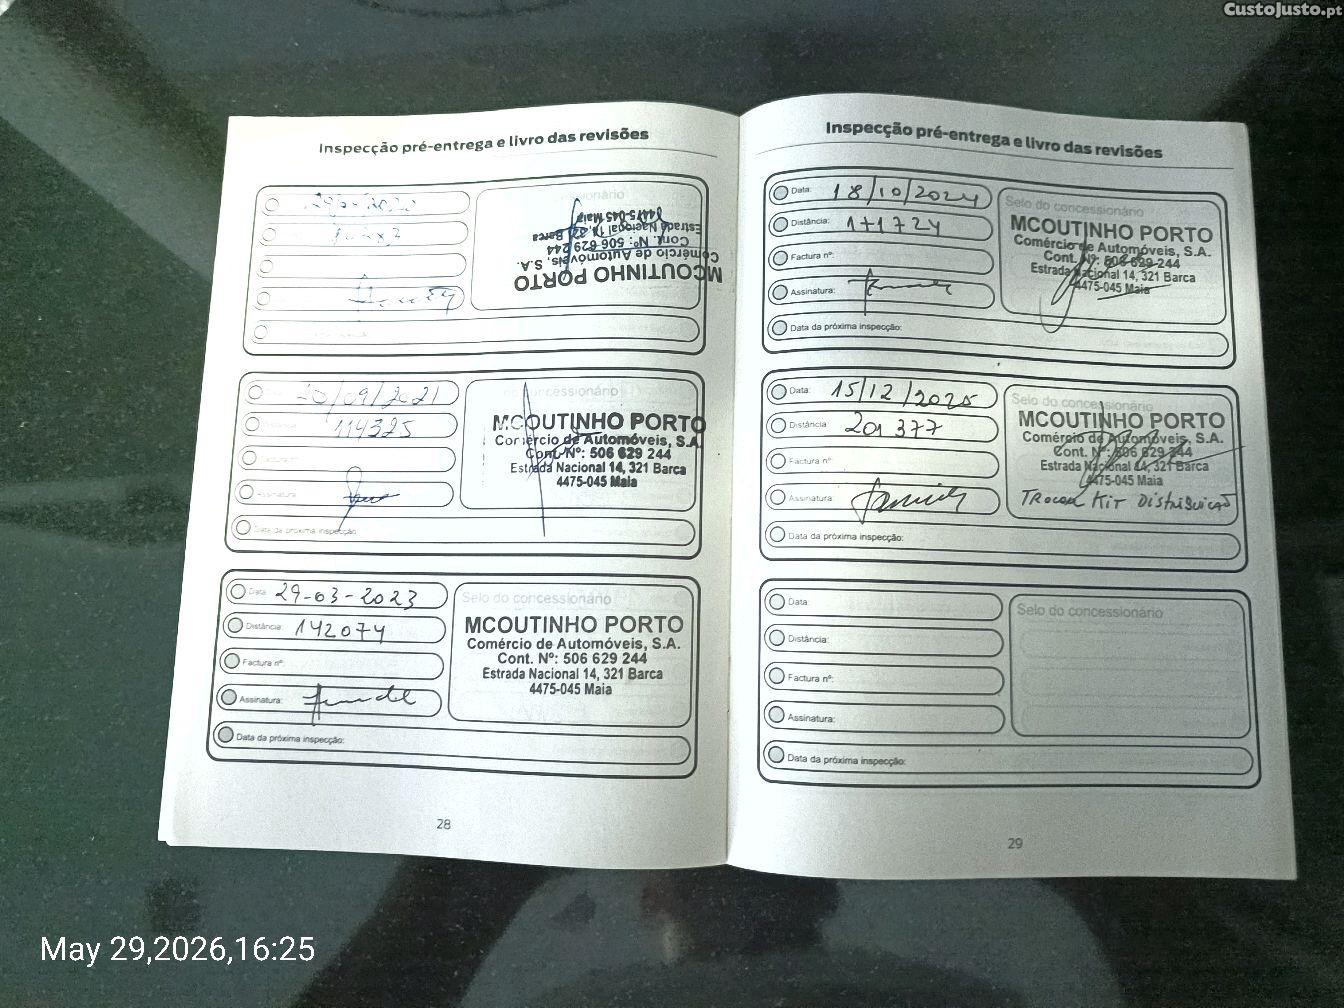 CustoJusto.pt
Inspecção pré-entrega e livro das revisões
MCOUTINHO PORTO
Comércio de Automóveis, S.A.
Cont. Nº: 506 629 244
Estrada Nacional 14, 321 Barca
4475-045 Maia
10/09/2021
114325
do concessionário
MCOUTINHO PORTO
Comércio de Automóveis, S.A.
Cont. Nº: 506 629 244
Estrada Nacional 14, 321 Barca
4475-045 Maia
Assinatura:
Data da próxima inspecção:
Data: 29-03-2023
Distância: 142074
Factura nº:
Assinatura:
Data da próxima inspecção:
Selo do concessionário
MCOUTINHO PORTO
Comércio de Automóveis, S.A.
Cont. Nº: 506 629 244
Estrada Nacional 14, 321 Barca
4475-045 Maia
28
Inspecção pré-entrega e livro das revisões
Data: 18/10/2024
Distância: 171724
Factura nº:
Assinatura:
Data da próxima inspecção:
Selo do concessionário
MCOUTINHO PORTO
Comércio de Automóveis, S.A.
Cont. Nº: 506 629 244
Estrada Nacional 14, 321 Barca
4475-045 Maia
Data: 15/12/2025
Distância: 201377
Factura nº
Assinatura:
Data da próxima inspecção:
Selo do concessionário
MCOUTINHO PORTO
Comércio de Automóveis, S.A.
Cont. Nº: 506 629 244
Estrada Nacional 14, 321 Barca
4475-045 Maia
TROCOU KIT DISTRIBUIÇÃO
Data:
Distância:
Factura nº:
Assinatura:
Data da próxima inspecção:
Selo do concessionário
29
May 29,2026,16:25